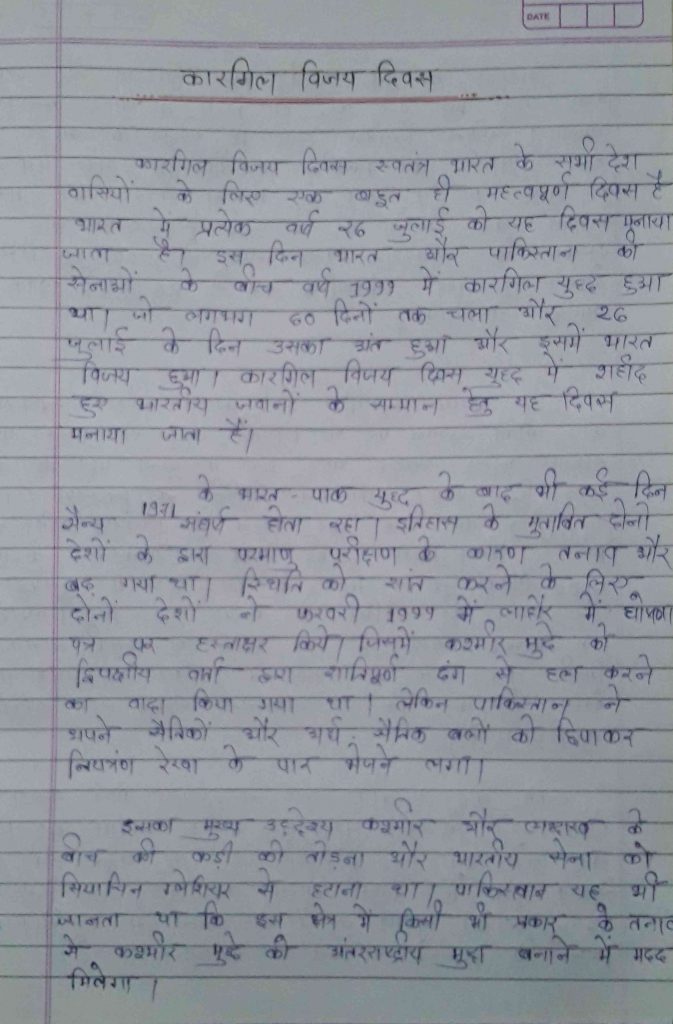 DATE
कारगिल विजय दिवस
कारगिल विजय दिवस स्वतंत्र भारत के सभी देश
वासियों के लिए एक बहुत ही महत्वपूर्ण दिवस है
भारत में प्रत्येक वर्ष २६ जुलाई को यह दिवस मनाया
जाता है। इस दिन भारत और पाकिस्तान की
सेनाओं के बीच वर्ष 1999 में कारगिल युद्ध हुआ
था। जो लगभग 60 दिनों तक चला और 26
जुलाई के दिन उसका अंत हुआ और इसमें भारत
विजय हुआ। कारगिल विजय दिवस युद्ध में शहीद
हुए भारतीय जवानों के सम्मान हेतु यह दिवस
मनाया जाता हैं।
1971 के भारत-पाक युद्ध के बाद भी कई दिन
सैन्य संघर्ष होता रहा। इतिहास के मुताबित दोनो
देशों के द्वारा परमाणु परीक्षण के कारण तनाव और
बढ़ गया था। स्थिति को शांत करने के लिए
दोनों देशों ने फरवरी 1999 में लाहौर में घोषणा
पत्र पर हस्ताक्षर किये। जिसमें कश्मीर मुद्दे को
द्विपक्षीय वार्ता द्वारा शांतिपूर्ण ढंग से हल करने
का वादा किया गया था। लेकिन पाकिस्तान ने
अपने सैनिकों और अर्ध-सैनिक बलों को छिपाकर
नियंत्रण रेखा के पार भेजने लगा।
इसका मुख्य उद्देश्य कश्मीर और लद्दाख के
बीच की कड़ी को तोड़ना और भारतीय सेना को
सियाचिन ग्लेशियर से हटाना था। पाकिस्तान यह भी
जानता था कि इस क्षेत्र में किसी भी प्रकार के तनाव
से कश्मीर मुद्दे को अंतरराष्ट्रीय मुद्दा बनाने में मदद
मिलेगा।